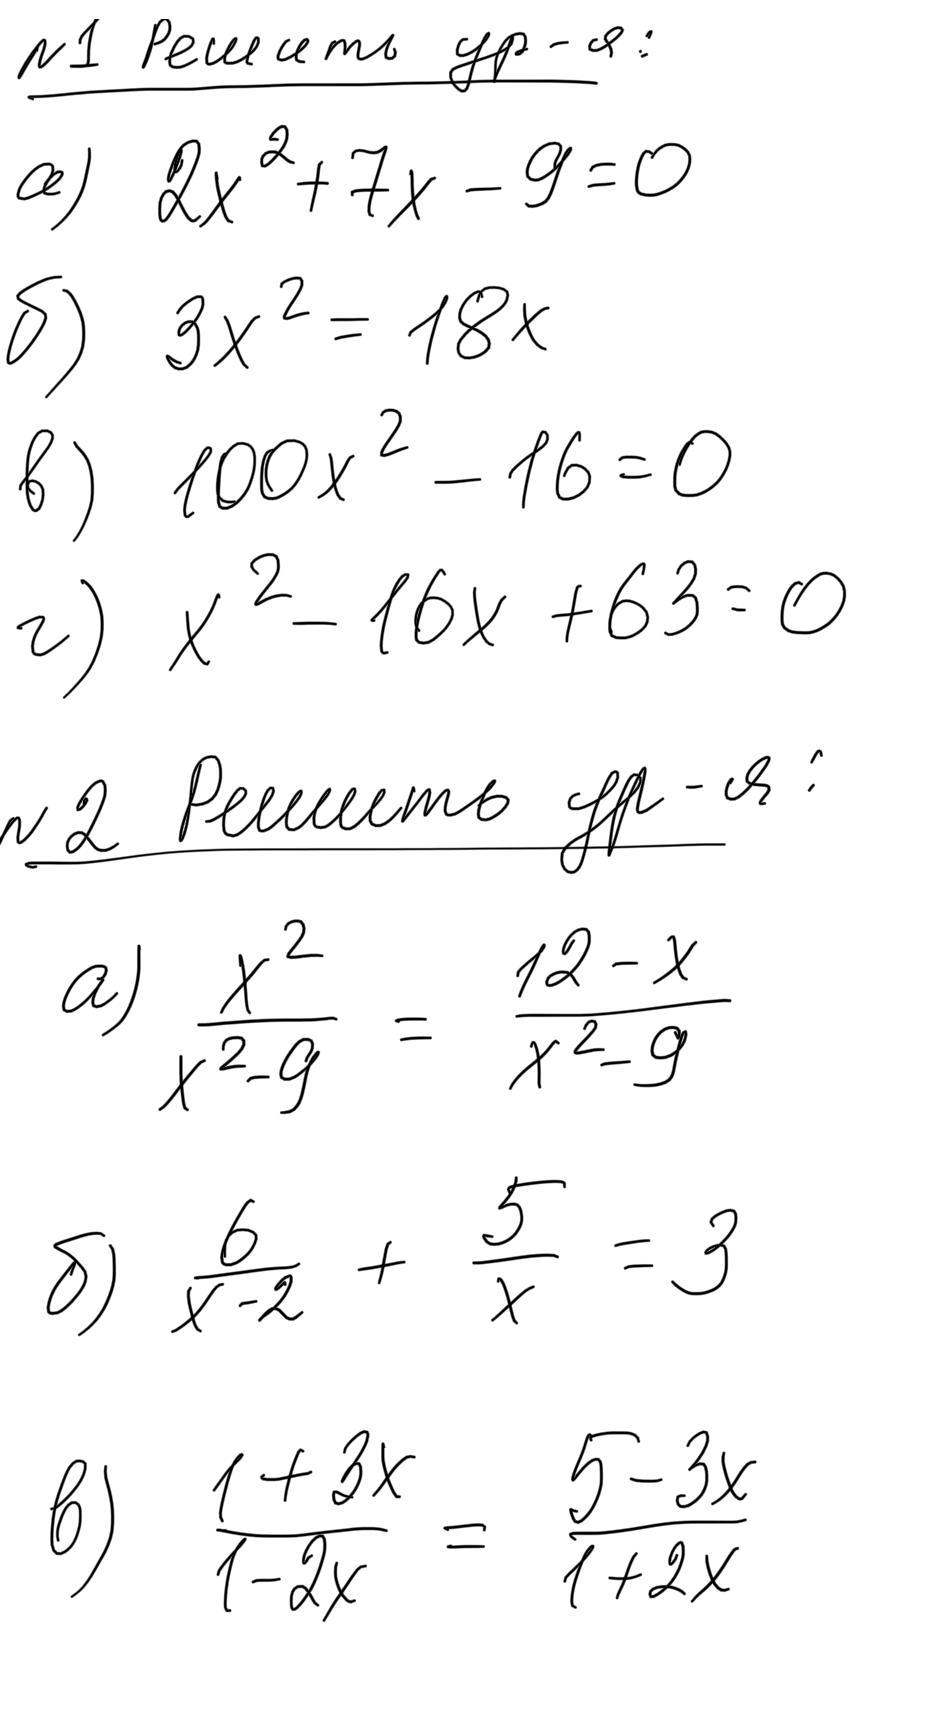 №1 Решить ур-я:
а) 2x²+7x-9=0
б) 3x²=18x
в) 100x²-16=0
г) x²-16x+63=0
№2 Решить ур-я:
а) x²/(x²-9) = (12-x)/(x²-9)
б) 6/(x-2) + 5/x = 3
в) (1+3x)/(1-2x) = (5-3x)/(1+2x)